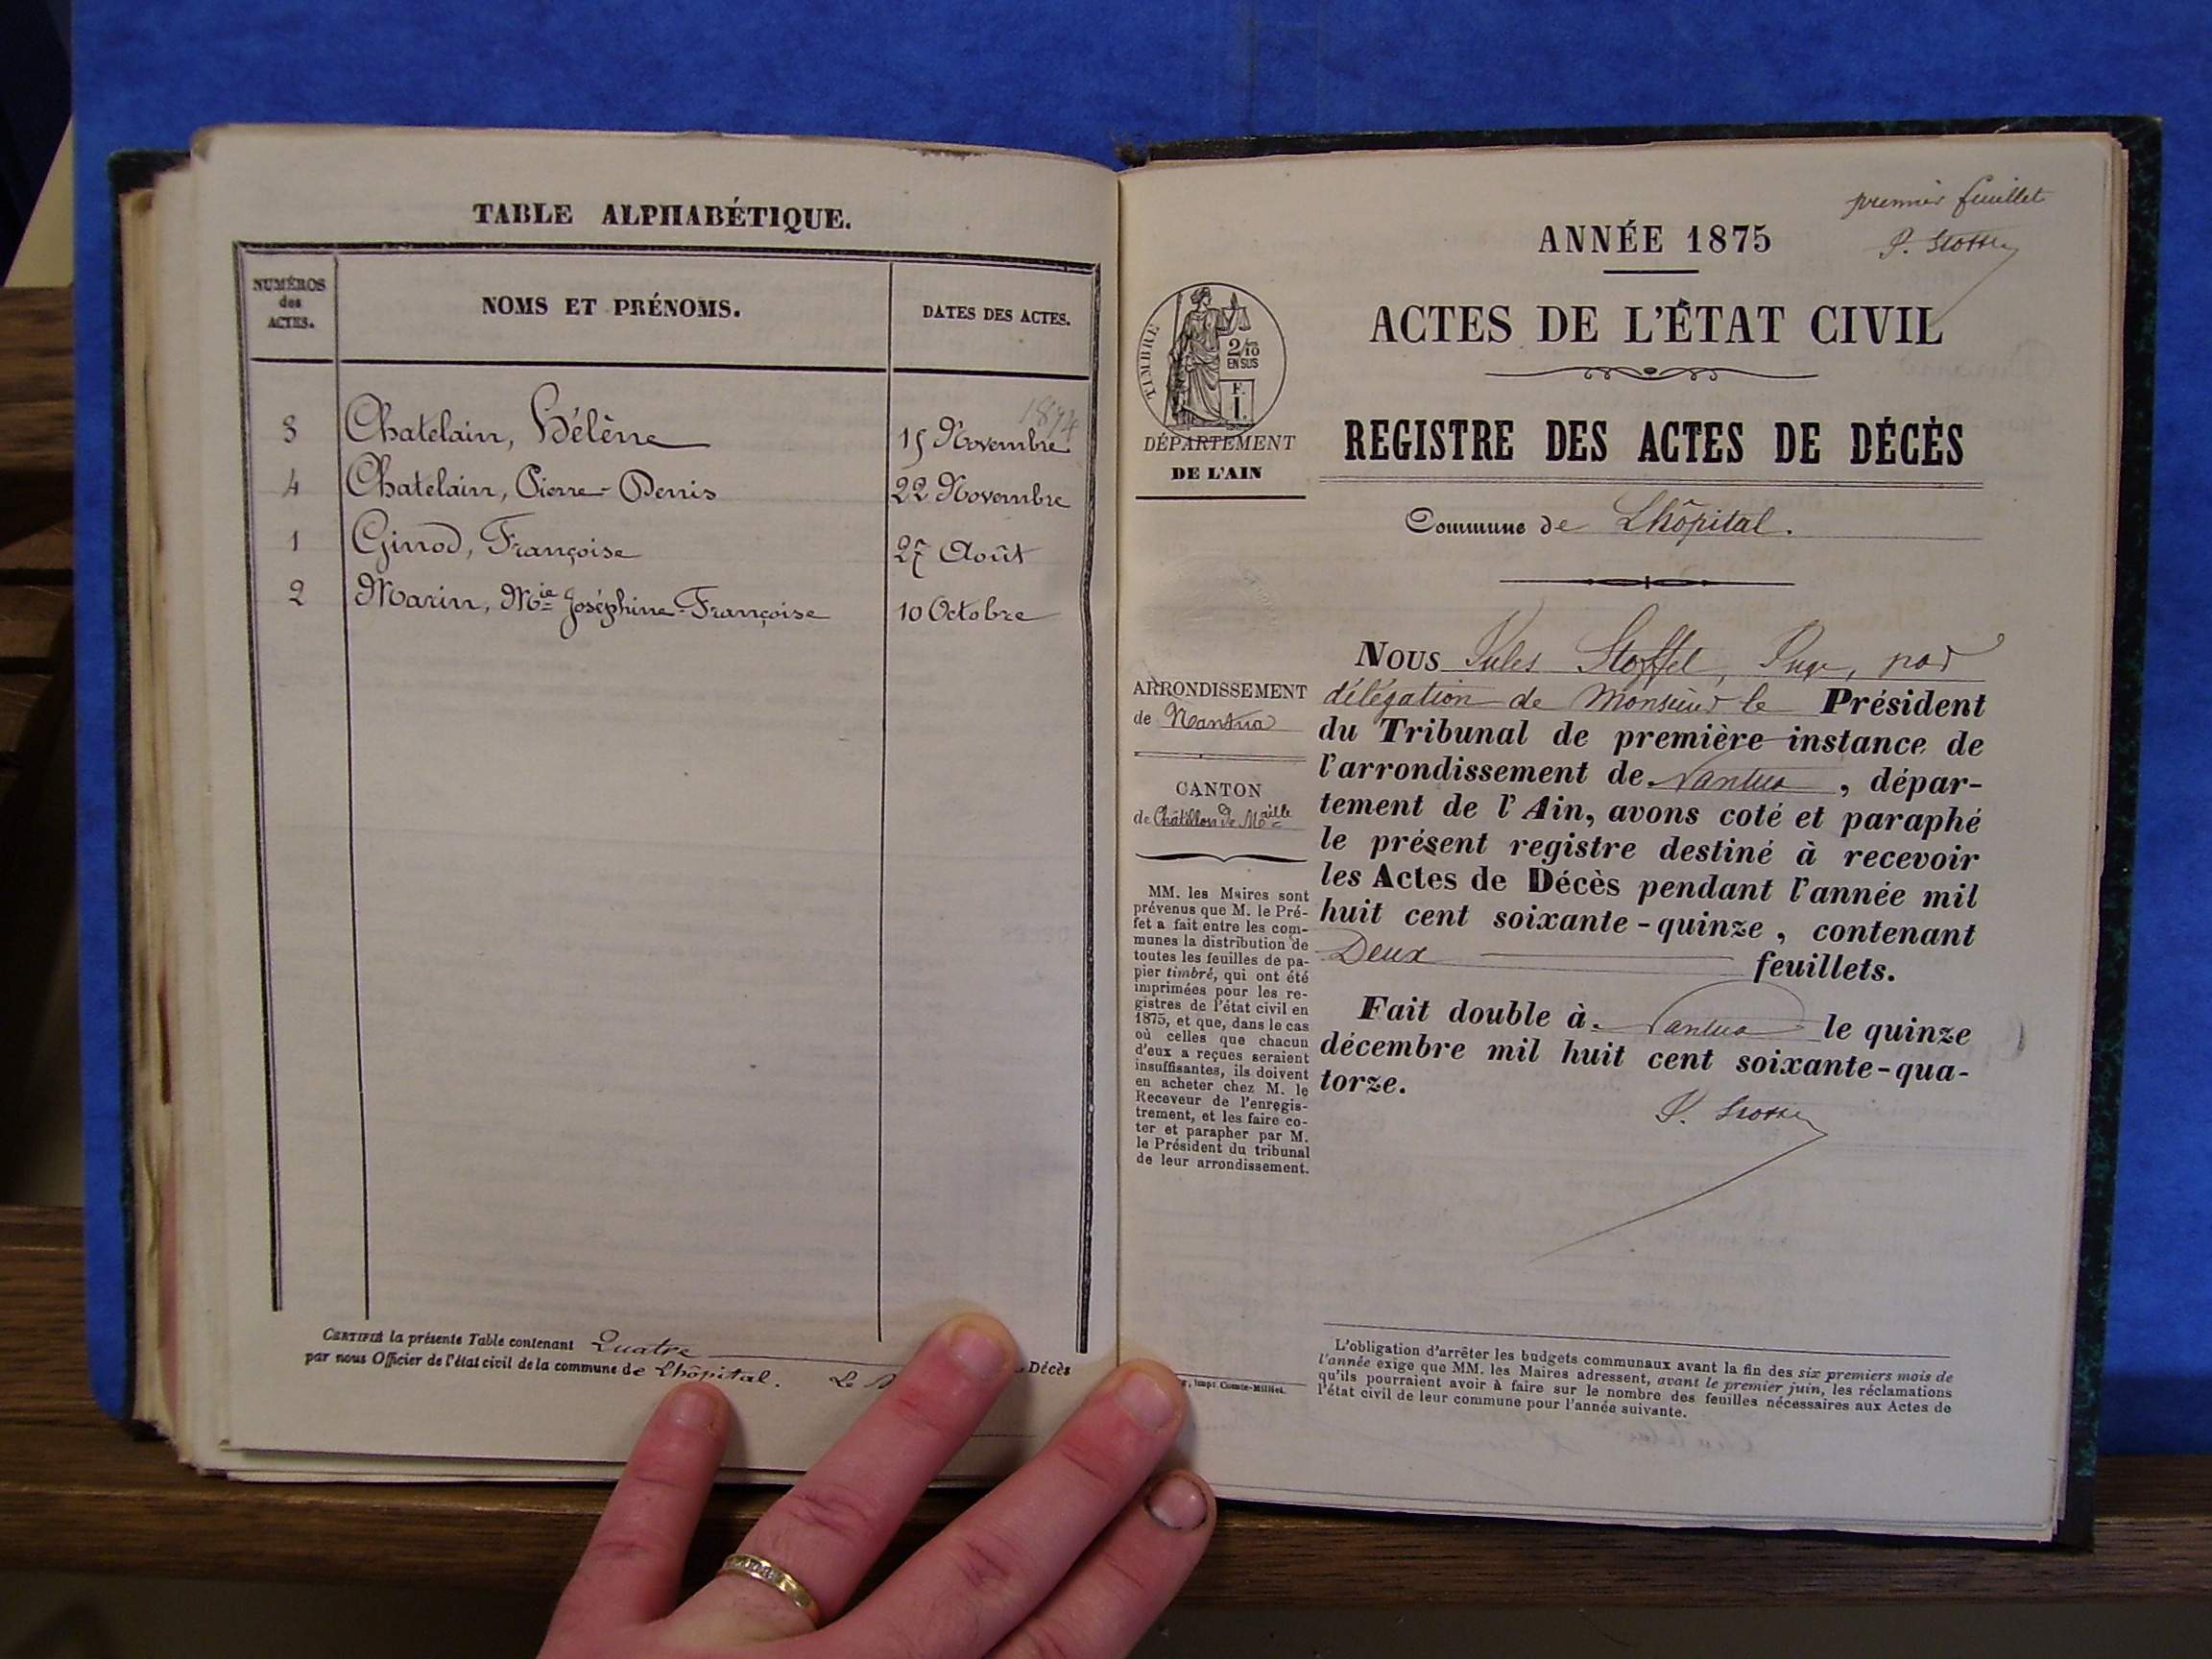 TABLE ALPHABÉTIQUE.
NUMÉROS
des
ACTES.
NOMS ET PRÉNOMS.
DATES DES ACTES.
1874
3 Chatelain, Hélène 15 Novembre
4 Chatelain, Pierre-Denis 22 Novembre
1 Ginod, Françoise 27 Août
2 Marin, Mie Joséphine-Françoise 10 Octobre
CERTIFIÉ la présente Table contenant Quatre Décès
par nous Officier de l'état civil de la commune de Lhôpital. Le
premier feuillet
J. Stoffel
ANNÉE 1875
ACTES DE L'ÉTAT CIVIL
TIMBRE
2/10
EN SUS
F.
1.
DÉPARTEMENT
DE L'AIN
REGISTRE DES ACTES DE DÉCÈS
Commune de Lhôpital.
ARRONDISSEMENT
de Nantua
CANTON
de Châtillon de Maille
MM. les Maires sont
prévenus que M. le Pré-
fet a fait entre les com-
munes la distribution de
toutes les feuilles de pa-
pier timbré, qui ont été
imprimées pour les re-
gistres de l'état civil en
1875, et que, dans le cas
où celles que chacun
d'eux a reçues seraient
insuffisantes, ils doivent
en acheter chez M. le
Receveur de l'enregis-
trement, et les faire co-
ter et parapher par M.
le Président du tribunal
de leur arrondissement.
NOUS Jules Stoffel, Juge, par
délégation de Monsieur le Président
du Tribunal de première instance de
l'arrondissement de Nantua, dépar-
tement de l'Ain, avons coté et paraphé
le présent registre destiné à recevoir
les Actes de Décès pendant l'année mil
huit cent soixante-quinze, contenant
Deux feuillets.
Fait double à Nantua le quinze
décembre mil huit cent soixante-qua-
torze.
J. Stoffel
Impr. Comte-Milliet.
L'obligation d'arrêter les budgets communaux avant la fin des six premiers mois de
l'année exige que MM. les Maires adressent, avant le premier juin, les réclamations
qu'ils pourraient avoir à faire sur le nombre des feuilles nécessaires aux Actes de
l'état civil de leur commune pour l'année suivante.